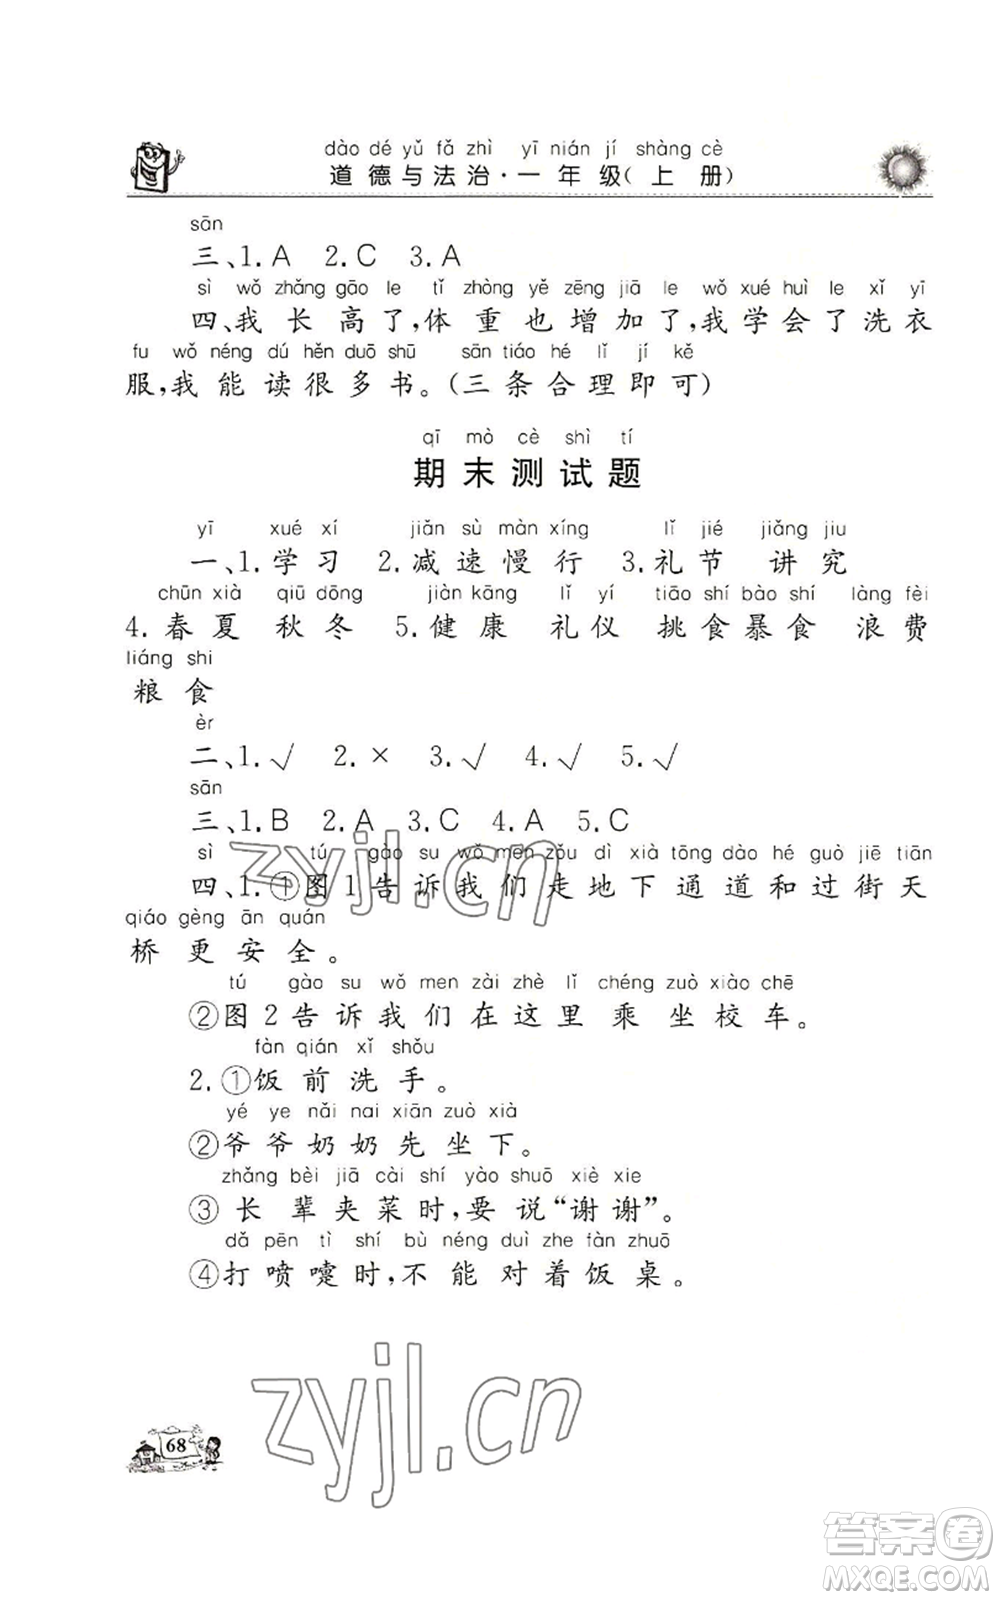 dào dé yǔ fǎ zhì yī nián jí shàng cè
道德与法治·一年级(上册)
sān
三、1.A 2.C 3.A
sì wǒ zhǎng gāo le tǐ zhòng yě zēng jiā le wǒ xué huì le xǐ yī
四、我长高了,体重也增加了,我学会了洗衣
fu wǒ néng dú hěn duō shū sān tiáo hé lǐ jí kě
服,我能读很多书。(三条合理即可)
qī mò cè shì tí
期末测试题
yī xué xí jiǎn sù màn xíng lǐ jié jiǎng jiu
一、1.学习 2.减速慢行 3.礼节 讲究
chūn xià qiū dōng jiàn kāng lǐ yí tiāo shí bào shí làng fèi
4.春夏 秋冬 5.健康 礼仪 挑食暴食 浪费
liáng shi
粮食
èr
二、1.√ 2.× 3.√ 4.√ 5.√
sān
三、1.B 2.A 3.C 4.A 5.C
sì tú gào su wǒ men zǒu dì xià tōng dào hé guò jiē tiān
四、1.①图1告诉我们走地下通道和过街天
qiáo gèng ān quán
桥更安全。
tú gào su wǒ men zài zhè lǐ chéng zuò xiào chē
②图2告诉我们在这里乘坐校车。
fàn qián xǐ shǒu
2.①饭前洗手。
yé ye nǎi nai xiān zuò xià
②爷爷奶奶先坐下。
zhǎng bèi jiā cài shí yào shuō xiè xie
③长辈夹菜时,要说“谢谢”。
dǎ pēn tì shí bù néng duì zhe fàn zhuō
④打喷嚏时,不能对着饭桌。
zyjl.cn
zyjl.cn
68
答案卷
MXQE.COM